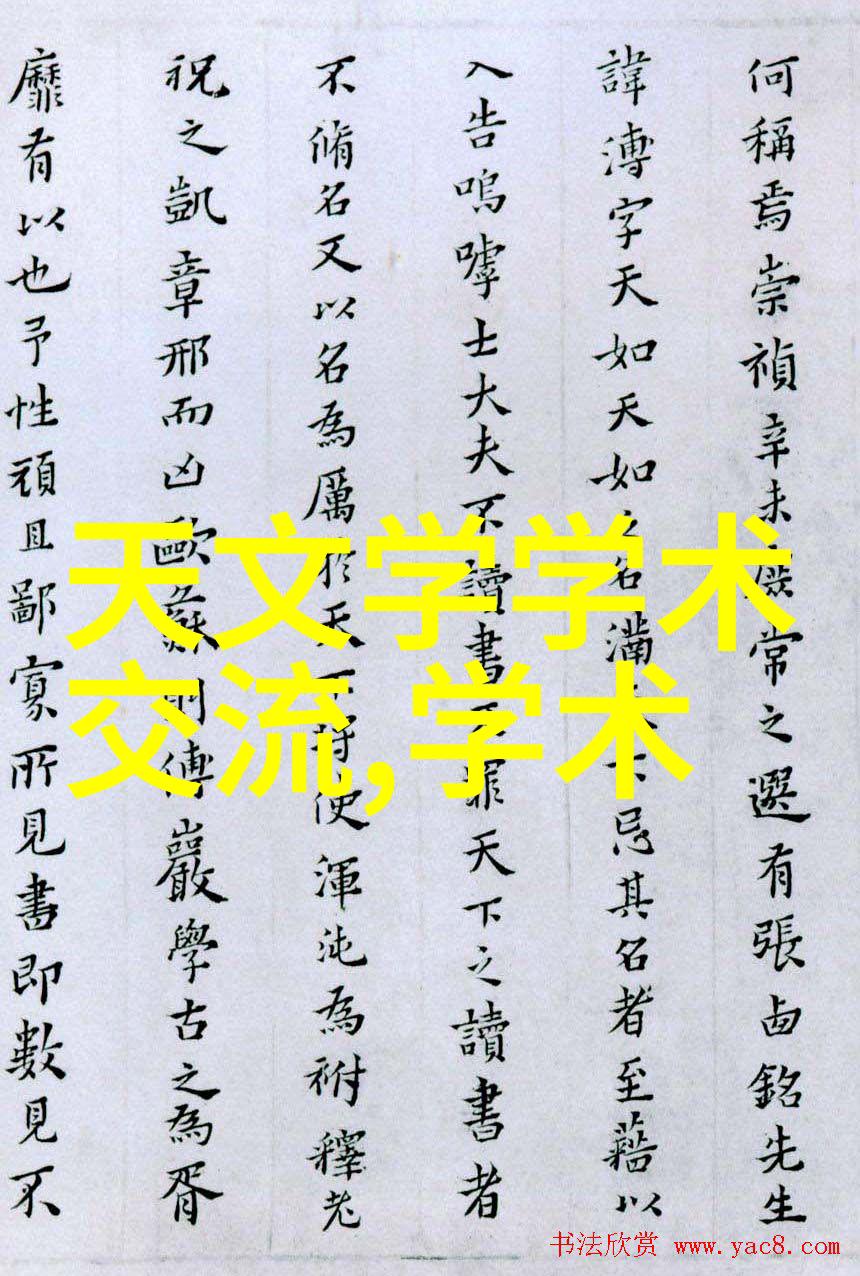 何稱焉崇禎辛未庶常之選有張卥銘先生
諱溥字天如天如之名滿天下忌其名者至藉以
入告嗚嘑士大夫不讀書罪天下之讀書者
不脩名又以名為厲於天下將使渾沌為祔釋老
祝之凱章邢而凶歐蘇明傅巖學古之為胥
靡有以也予性頑且鄙寡所見書即數見不
天文学学术
交流,学术
书法欣赏 www.yac8.com